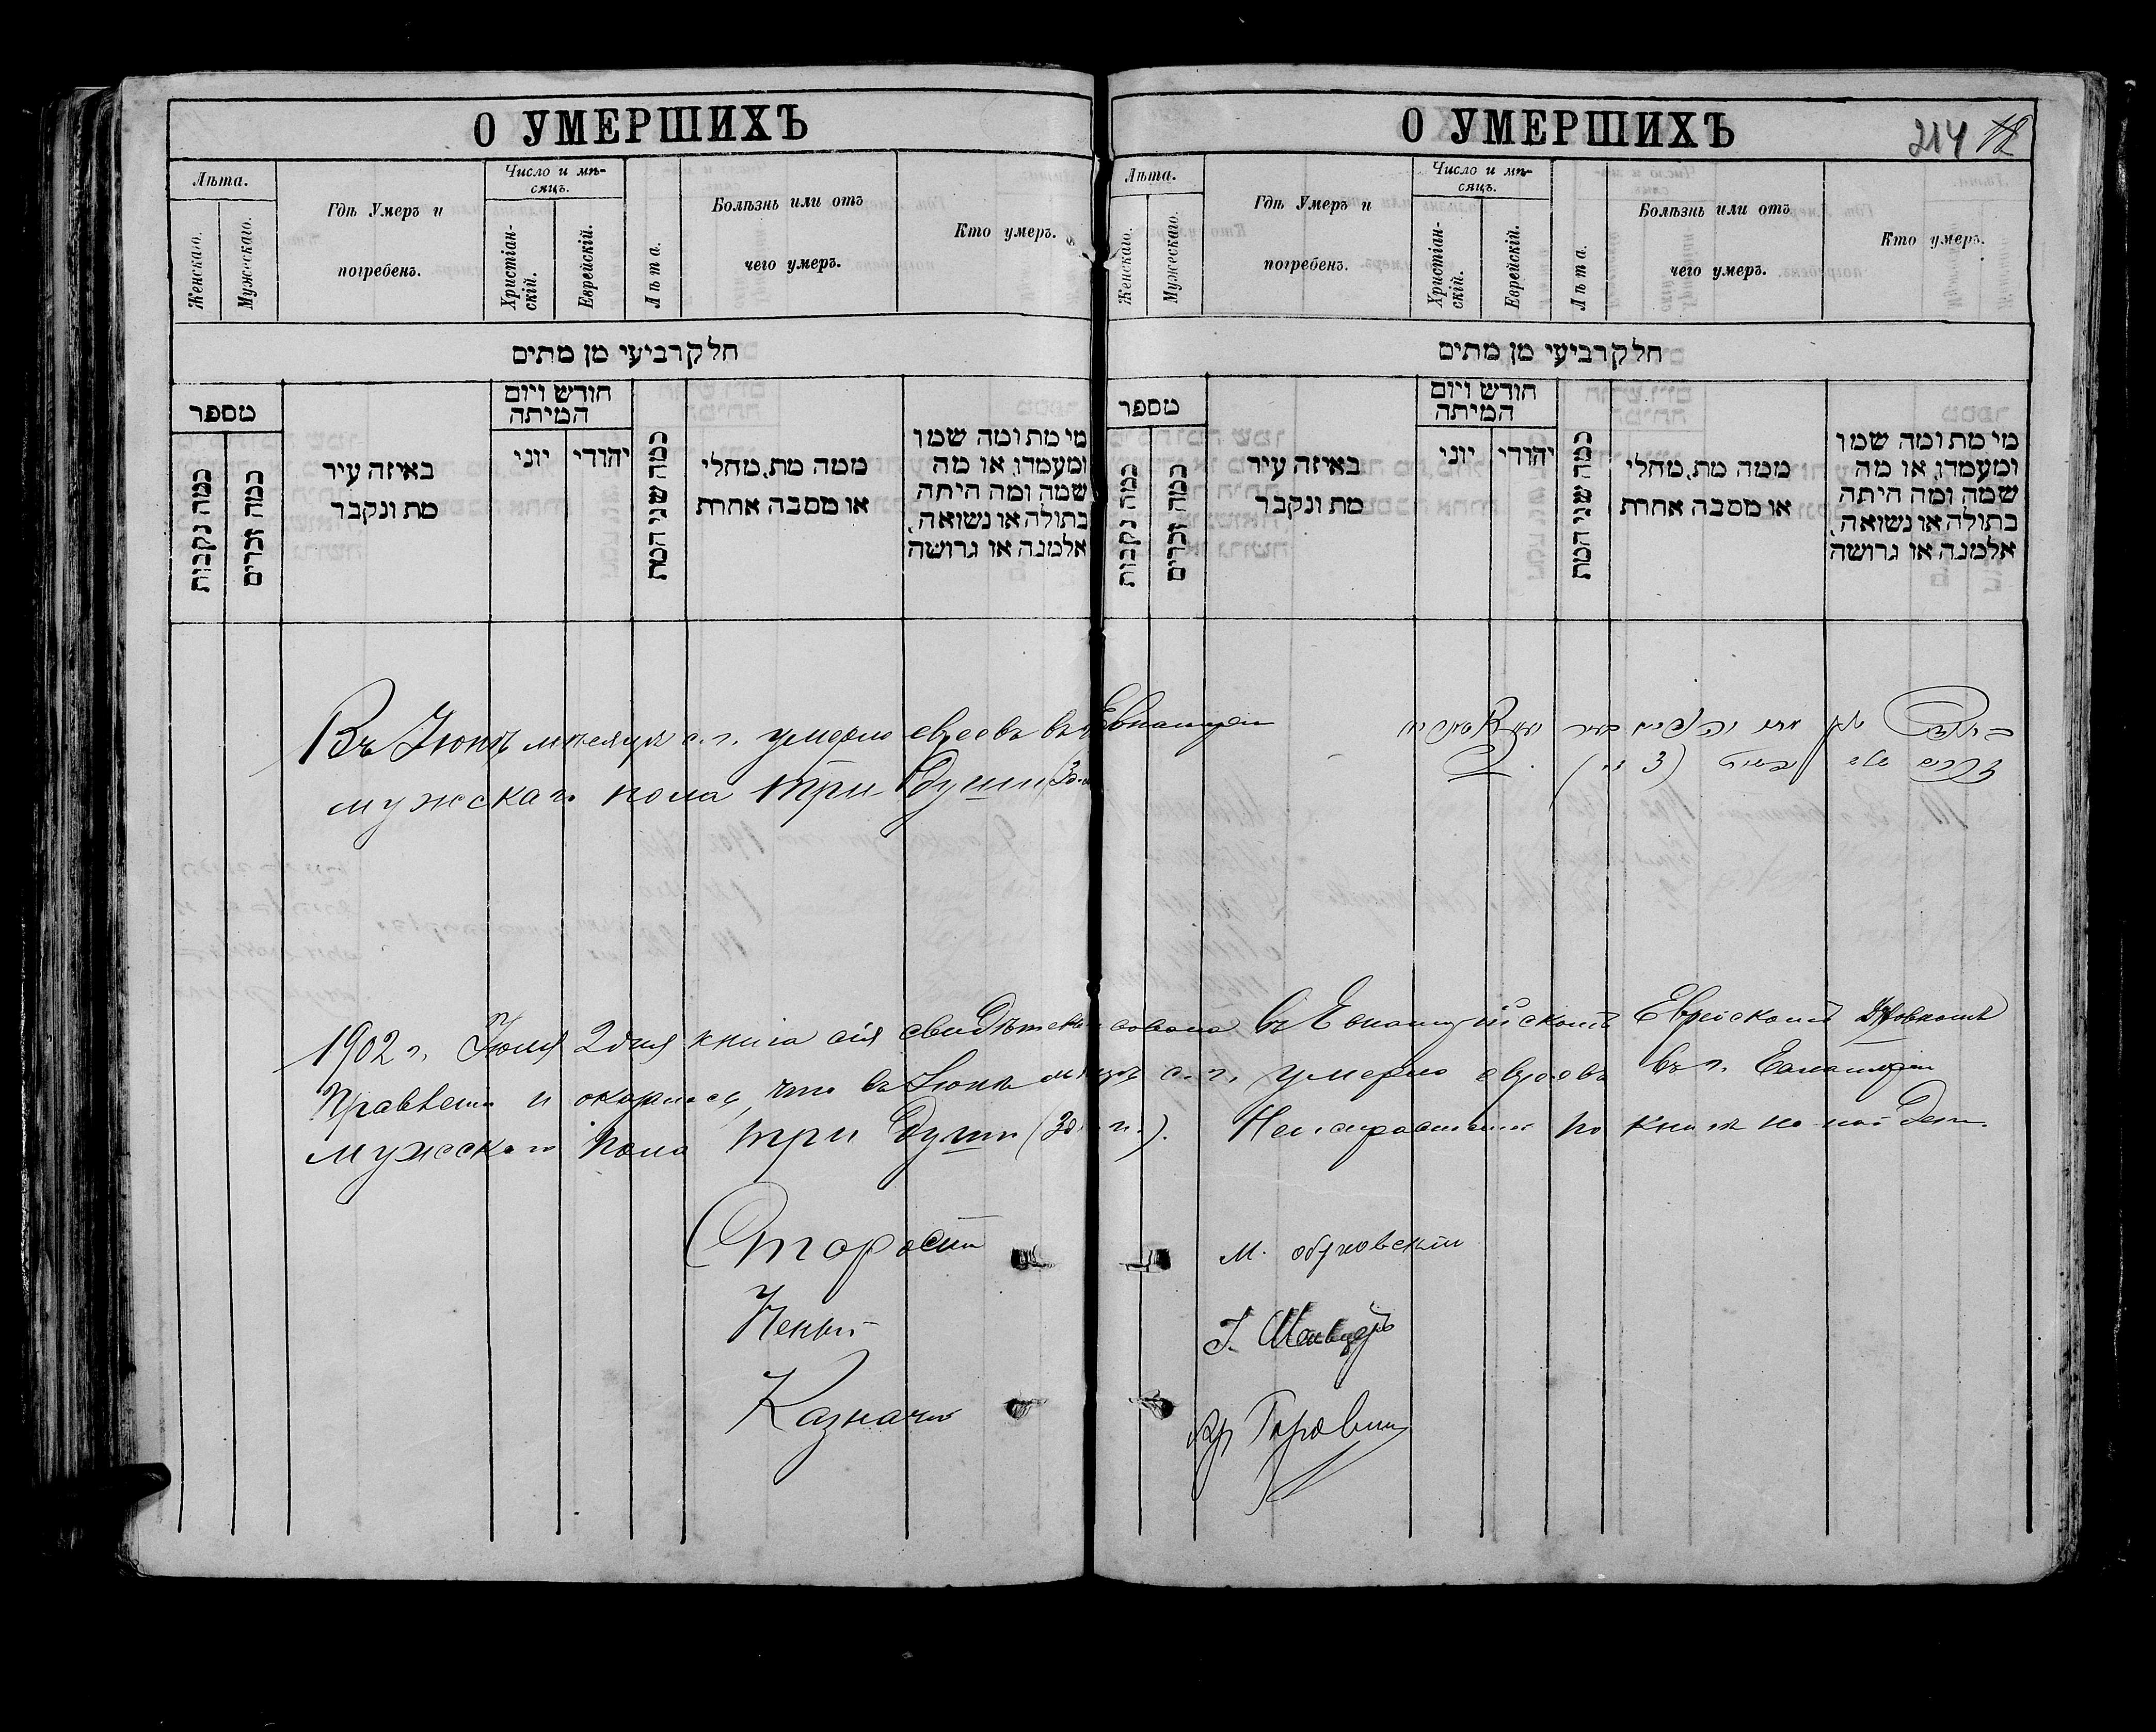 О УМЕРШИХЪ
Лѣта.
Женскаго.
Мужескаго.
Гдѣ Умеръ и
погребенъ.
Число и мѣ-
сяцъ.
Христіан-
скій.
Еврейскій.
Лѣта.
Болѣзнь или отъ
чего умеръ.
Кто умеръ.
חלק רביעי מן מתים
מספר
כמה נקבות
כמה זכרים
באיזה עיר
מת ונקבר
חודש ויום
המיתה
יוני
יהודי
כמה שני המת
ממה מת, מחלי
או מסבה אחרת
מי מת ומה שמו
ומעמדו, או מה
שמה ומה היתה
בתולה או נשואה,
אלמנה או גרושה
О УМЕРШИХЪ
214 12
Лѣта.
Женскаго.
Мужескаго.
Гдѣ Умеръ и
погребенъ.
Число и мѣ-
сяцъ.
Христіан-
скій.
Еврейскій.
Лѣта.
Болѣзнь или отъ
чего умеръ.
Кто умеръ.
חלק רביעי מן מתים
מספר
כמה נקבות
כמה זכרים
באיזה עיר
מת ונקבר
חודש ויום
המיתה
יוני
יהודי
כמה שני המת
ממה מת, מחלי
או מסבה אחרת
מי מת ומה שמו
ומעמדו, או מה
שמה ומה היתה
בתולה או נשואה,
אלמנה או גרושה
Въ Іюнѣ мѣсяцѣ с. г. умерло евреевъ въ г. Евпаторіи
мужскаго пола три души (3 д.
1902 г. Іюля 2 дня книга сія свидѣтельствована въ Евпаторійскомъ Еврейскомъ Духовномъ
Правленіи и оказалось, что въ Іюнѣ мѣсяцѣ с. г. умерло евреевъ въ г. Евпаторіи
мужскаго пола три души (3 д. м. п.). Неисправностей по книгѣ не найдено.
Староста М.
Ученый І.
Казначей